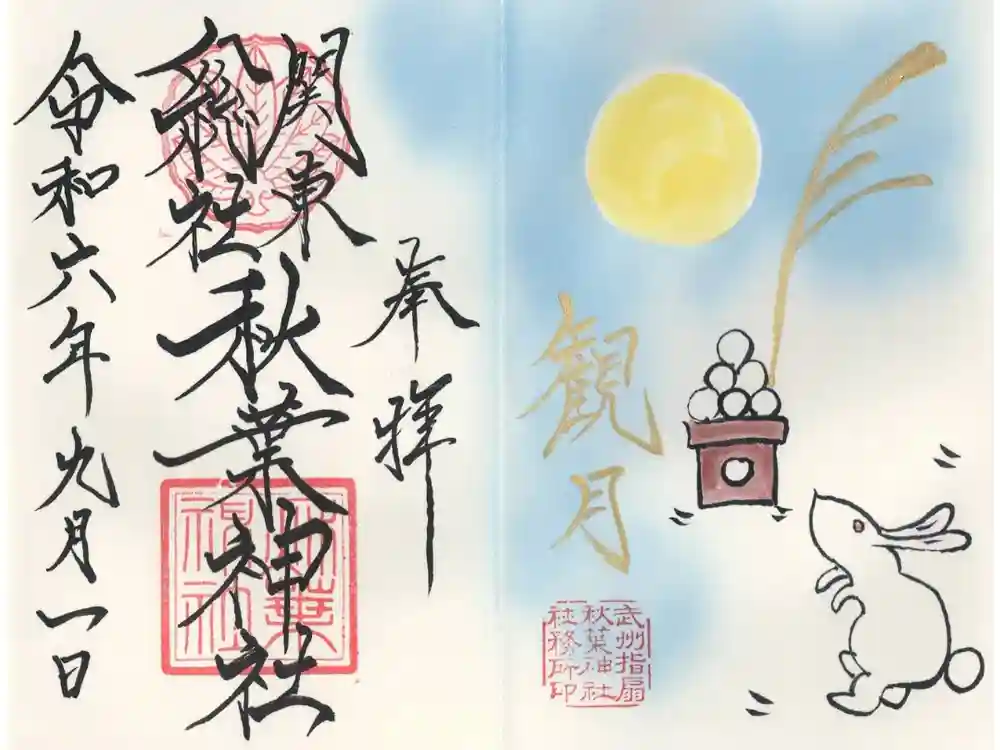 観月
武州指扇
秋葉神社
社務所印
奉拝
関東
総社
秋葉神社
令和六年九月一日